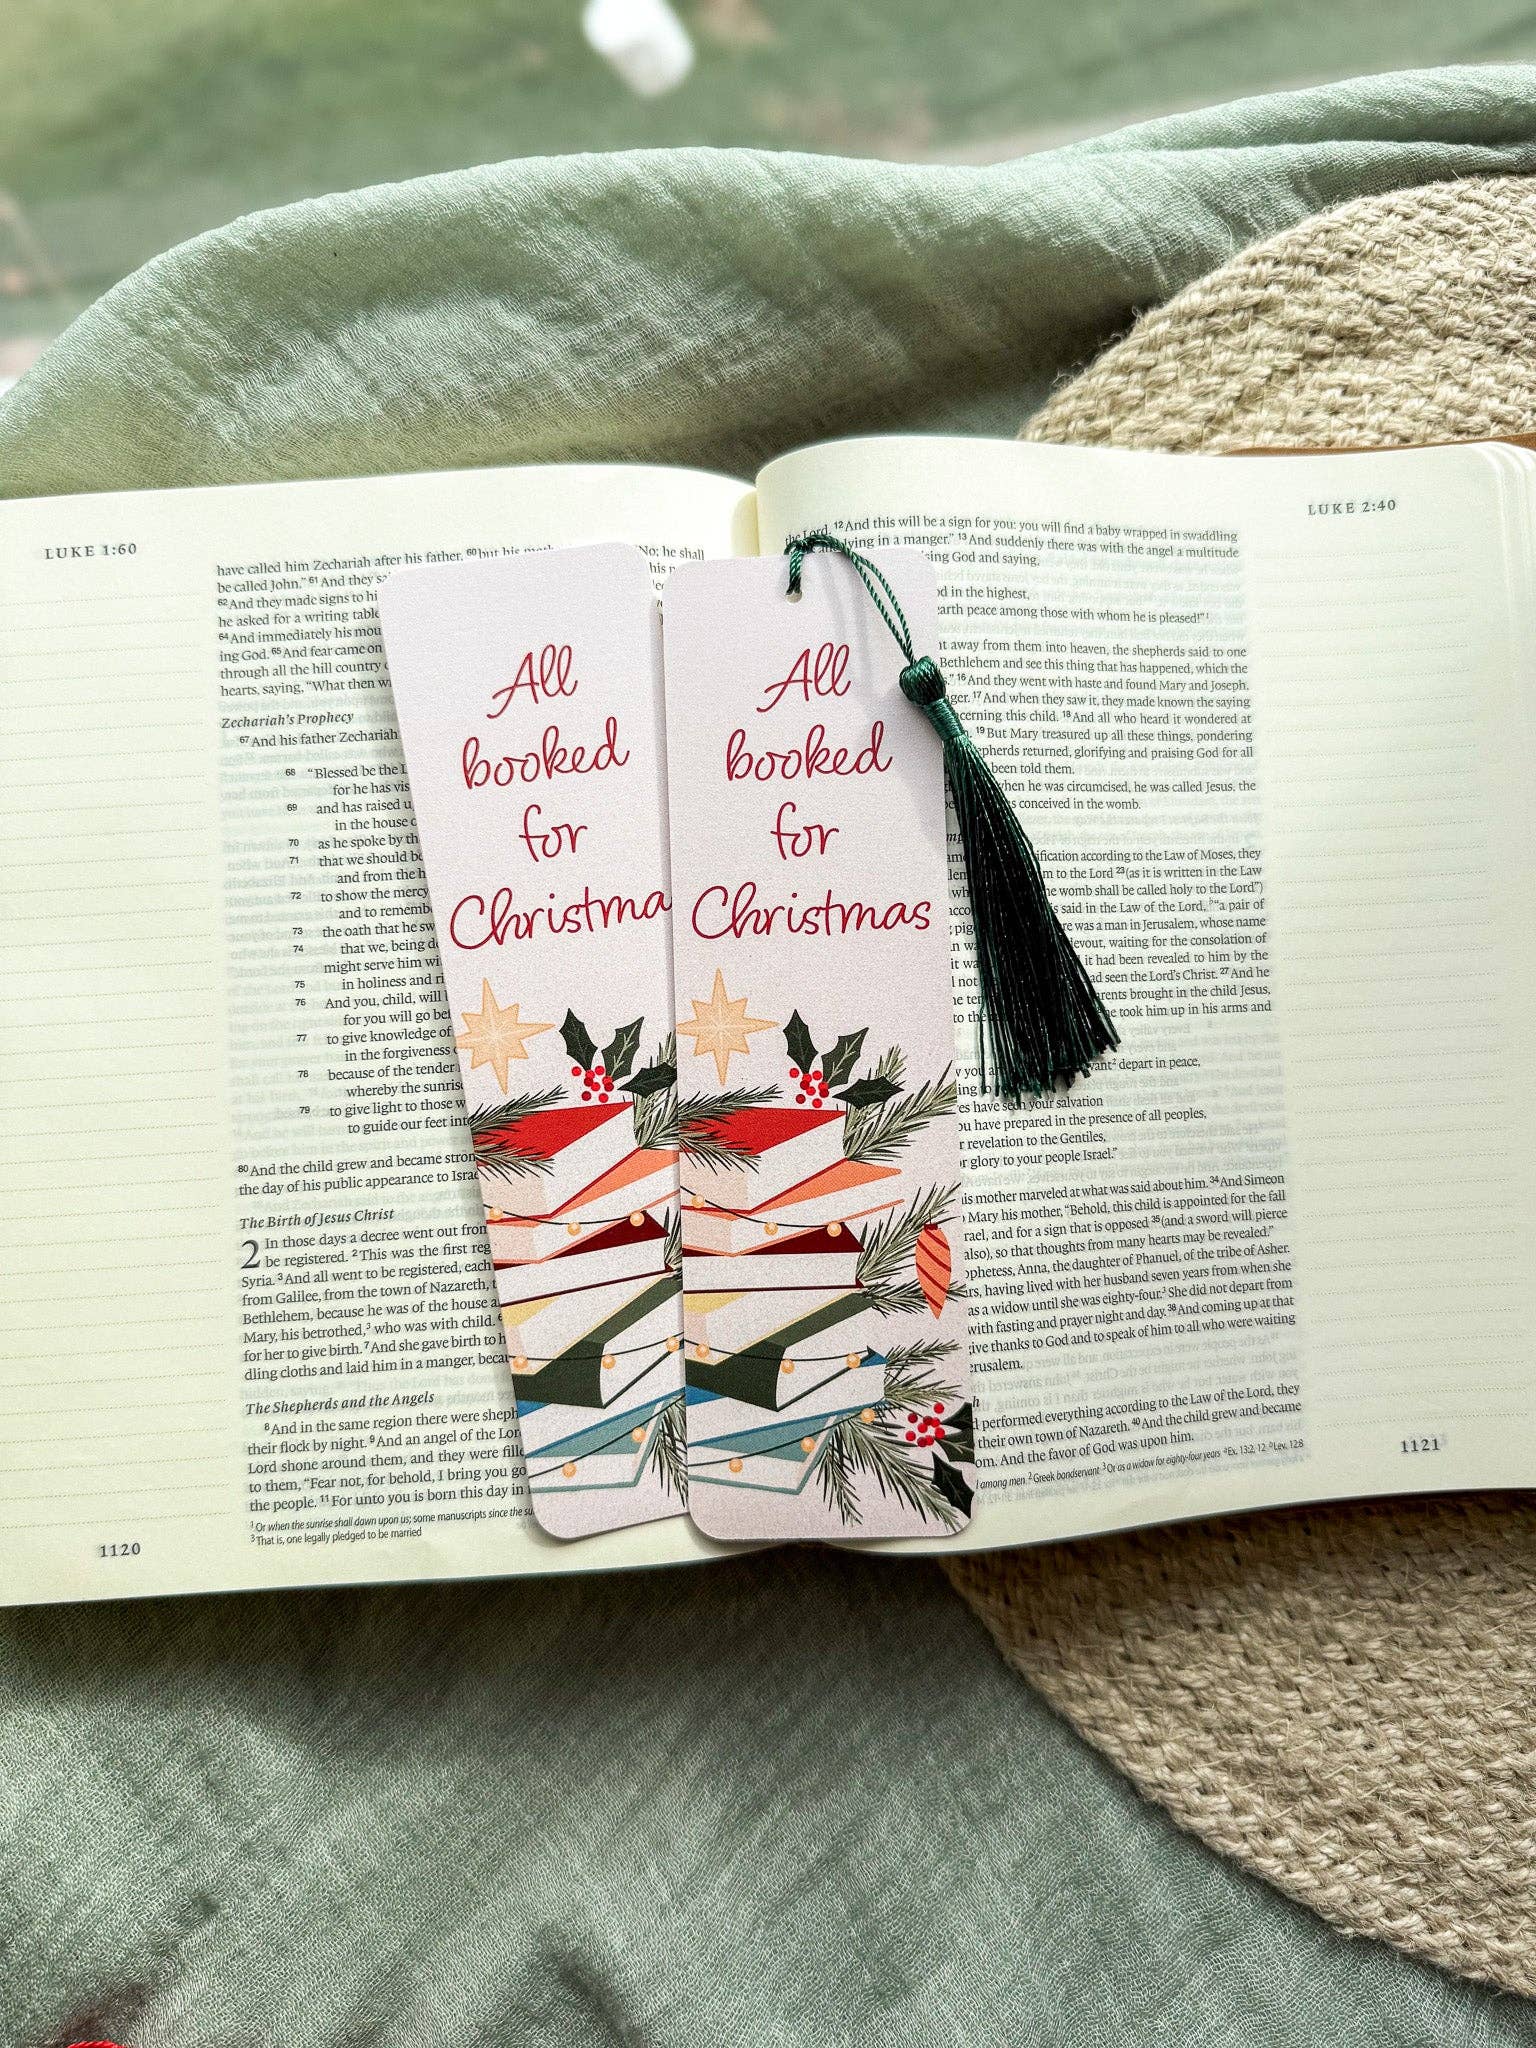 LUKE 1:60
have called him Zechariah after his father, 60 but his
be called John." 61 And they
62 And they made signs to
he asked for a writing
64 And immediately his
ing God. 65 And fear came on
through all the hill country
hearts, saying, "What then
Zechariah's Prophecy
67 And his father Zechariah
68 "Blessed be the
for he has
69 and has raised
in the house
70 as he spoke by
71 that we should
and from the
72 to show the
and to
73 the oath that he
74 that we, being
might serve him
75 in holiness and
76 And you, child, will
for you will go
77 to give knowledge of
in the forgiveness
78 because of the tender
whereby the
79 to give light to those
to guide our feet
80 And the child grew and became
the day of his public appearance to
The Birth of Jesus Christ
2 In those days a decree went out from
be registered. 2 This was the first
Syria. 3 And all went to be registered, each
from Galilee, from the town of Nazareth,
Bethlehem, because he was of the house
Mary, his betrothed,3 who was with child.
for her to give birth. 7 And she gave birth to
dling cloths and laid him in a manger,
The Shepherds and the Angels
8 And in the same region there were
their flock by night. 9 And an angel of the
Lord shone around them, and they were
to them, "Fear not, for behold, I bring you
the people. 11 For unto you is born this day in
1 Or when the sunrise shall dawn upon us; some manuscripts since the
3 That is, one legally pledged to be married
1120
"No; he shall
All
booked
for
Christma
All
booked
for
Christmas
LUKE 2:40
the Lord. 12 And this will be a sign for you: you will find a baby wrapped in swaddling
lying in a manger." 13 And suddenly there was with the angel a multitude
God and saying,
in the highest,
peace among those with whom he is pleased!"1
away from them into heaven, the shepherds said to one
Bethlehem and see this thing that has happened, which the
16 And they went with haste and found Mary and Joseph,
17 And when they saw it, they made known the saying
this child. 18 And all who heard it wondered at
19 But Mary treasured up all these things, pondering
returned, glorifying and praising God for all
been told them.
when he was circumcised, he was called Jesus, the
conceived in the womb.
according to the Law of Moses, they
to the Lord 23 (as it is written in the Law
womb shall be called holy to the Lord")
is said in the Law of the Lord, "a pair of
was a man in Jerusalem, whose name
devout, waiting for the consolation of
it had been revealed to him by the
seen the Lord's Christ. 27 And he
brought in the child Jesus,
he took him up in his arms and
depart in peace,
have seen your salvation
you have prepared in the presence of all peoples,
revelation to the Gentiles,
glory to your people Israel."
his mother marveled at what was said about him. 34 And Simeon
Mary his mother, "Behold, this child is appointed for the fall
and for a sign that is opposed 35 (and a sword will pierce
also), so that thoughts from many hearts may be revealed."
Anna, the daughter of Phanuel, of the tribe of Asher.
having lived with her husband seven years from when she
as a widow until she was eighty-four.3 She did not depart from
with fasting and prayer night and day. 38 And coming up at that
give thanks to God and to speak of him to all who were waiting
performed everything according to the Law of the Lord, they
their own town of Nazareth. 40 And the child grew and became
And the favor of God was upon him.
among men. 2 Greek bondservant 3 Or as a widow for eighty-four years
1121